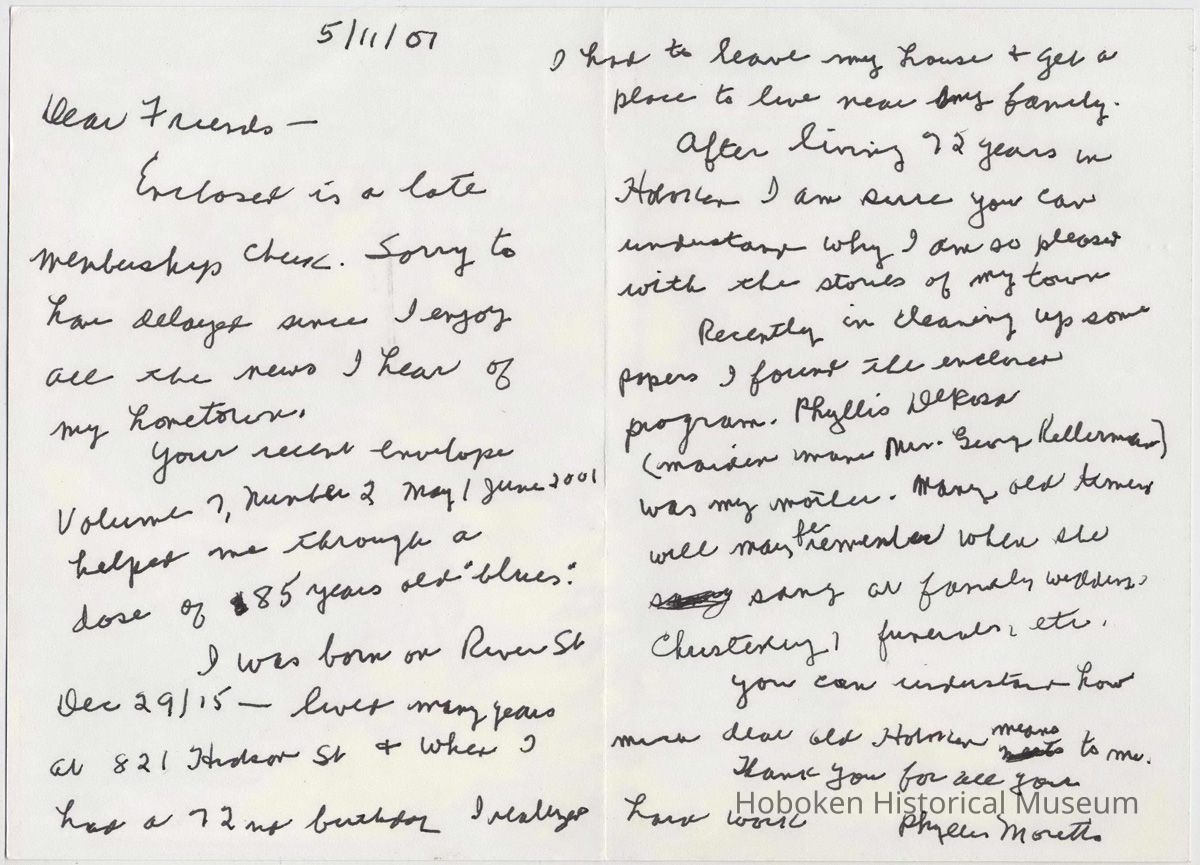 5/11/01
Dear Friends —
Enclosed is a late
membership check. Sorry to
have delayed since I enjoy
all the news I hear of
my hometown.
Your recent envelope
Volume 7, Number 2 May/June 2001
helped me through a
dose of 85 years old "blues".
I was born on River St
Dec 29/15 — lived many years
at 821 Hudson St & when I
had a 72nd birthday I realized
I had to leave my house & get a
place to live near my family.
After living 72 years in
Hoboken I am sure you can
understand why I am so pleased
with the stories of my town
Recently in cleaning up some
papers I found the enclosed
program. Phyllis DeRosa
(maiden name Mrs. George Kellerman)
was my mother. Many old timers
will maybe remember when she
sang at family weddings
Christenings, funerals, etc.
You can understand how
much dear old Hoboken means to me.
Thank you for all your
hard work Phyllis Moretto
Hoboken Historical Museum